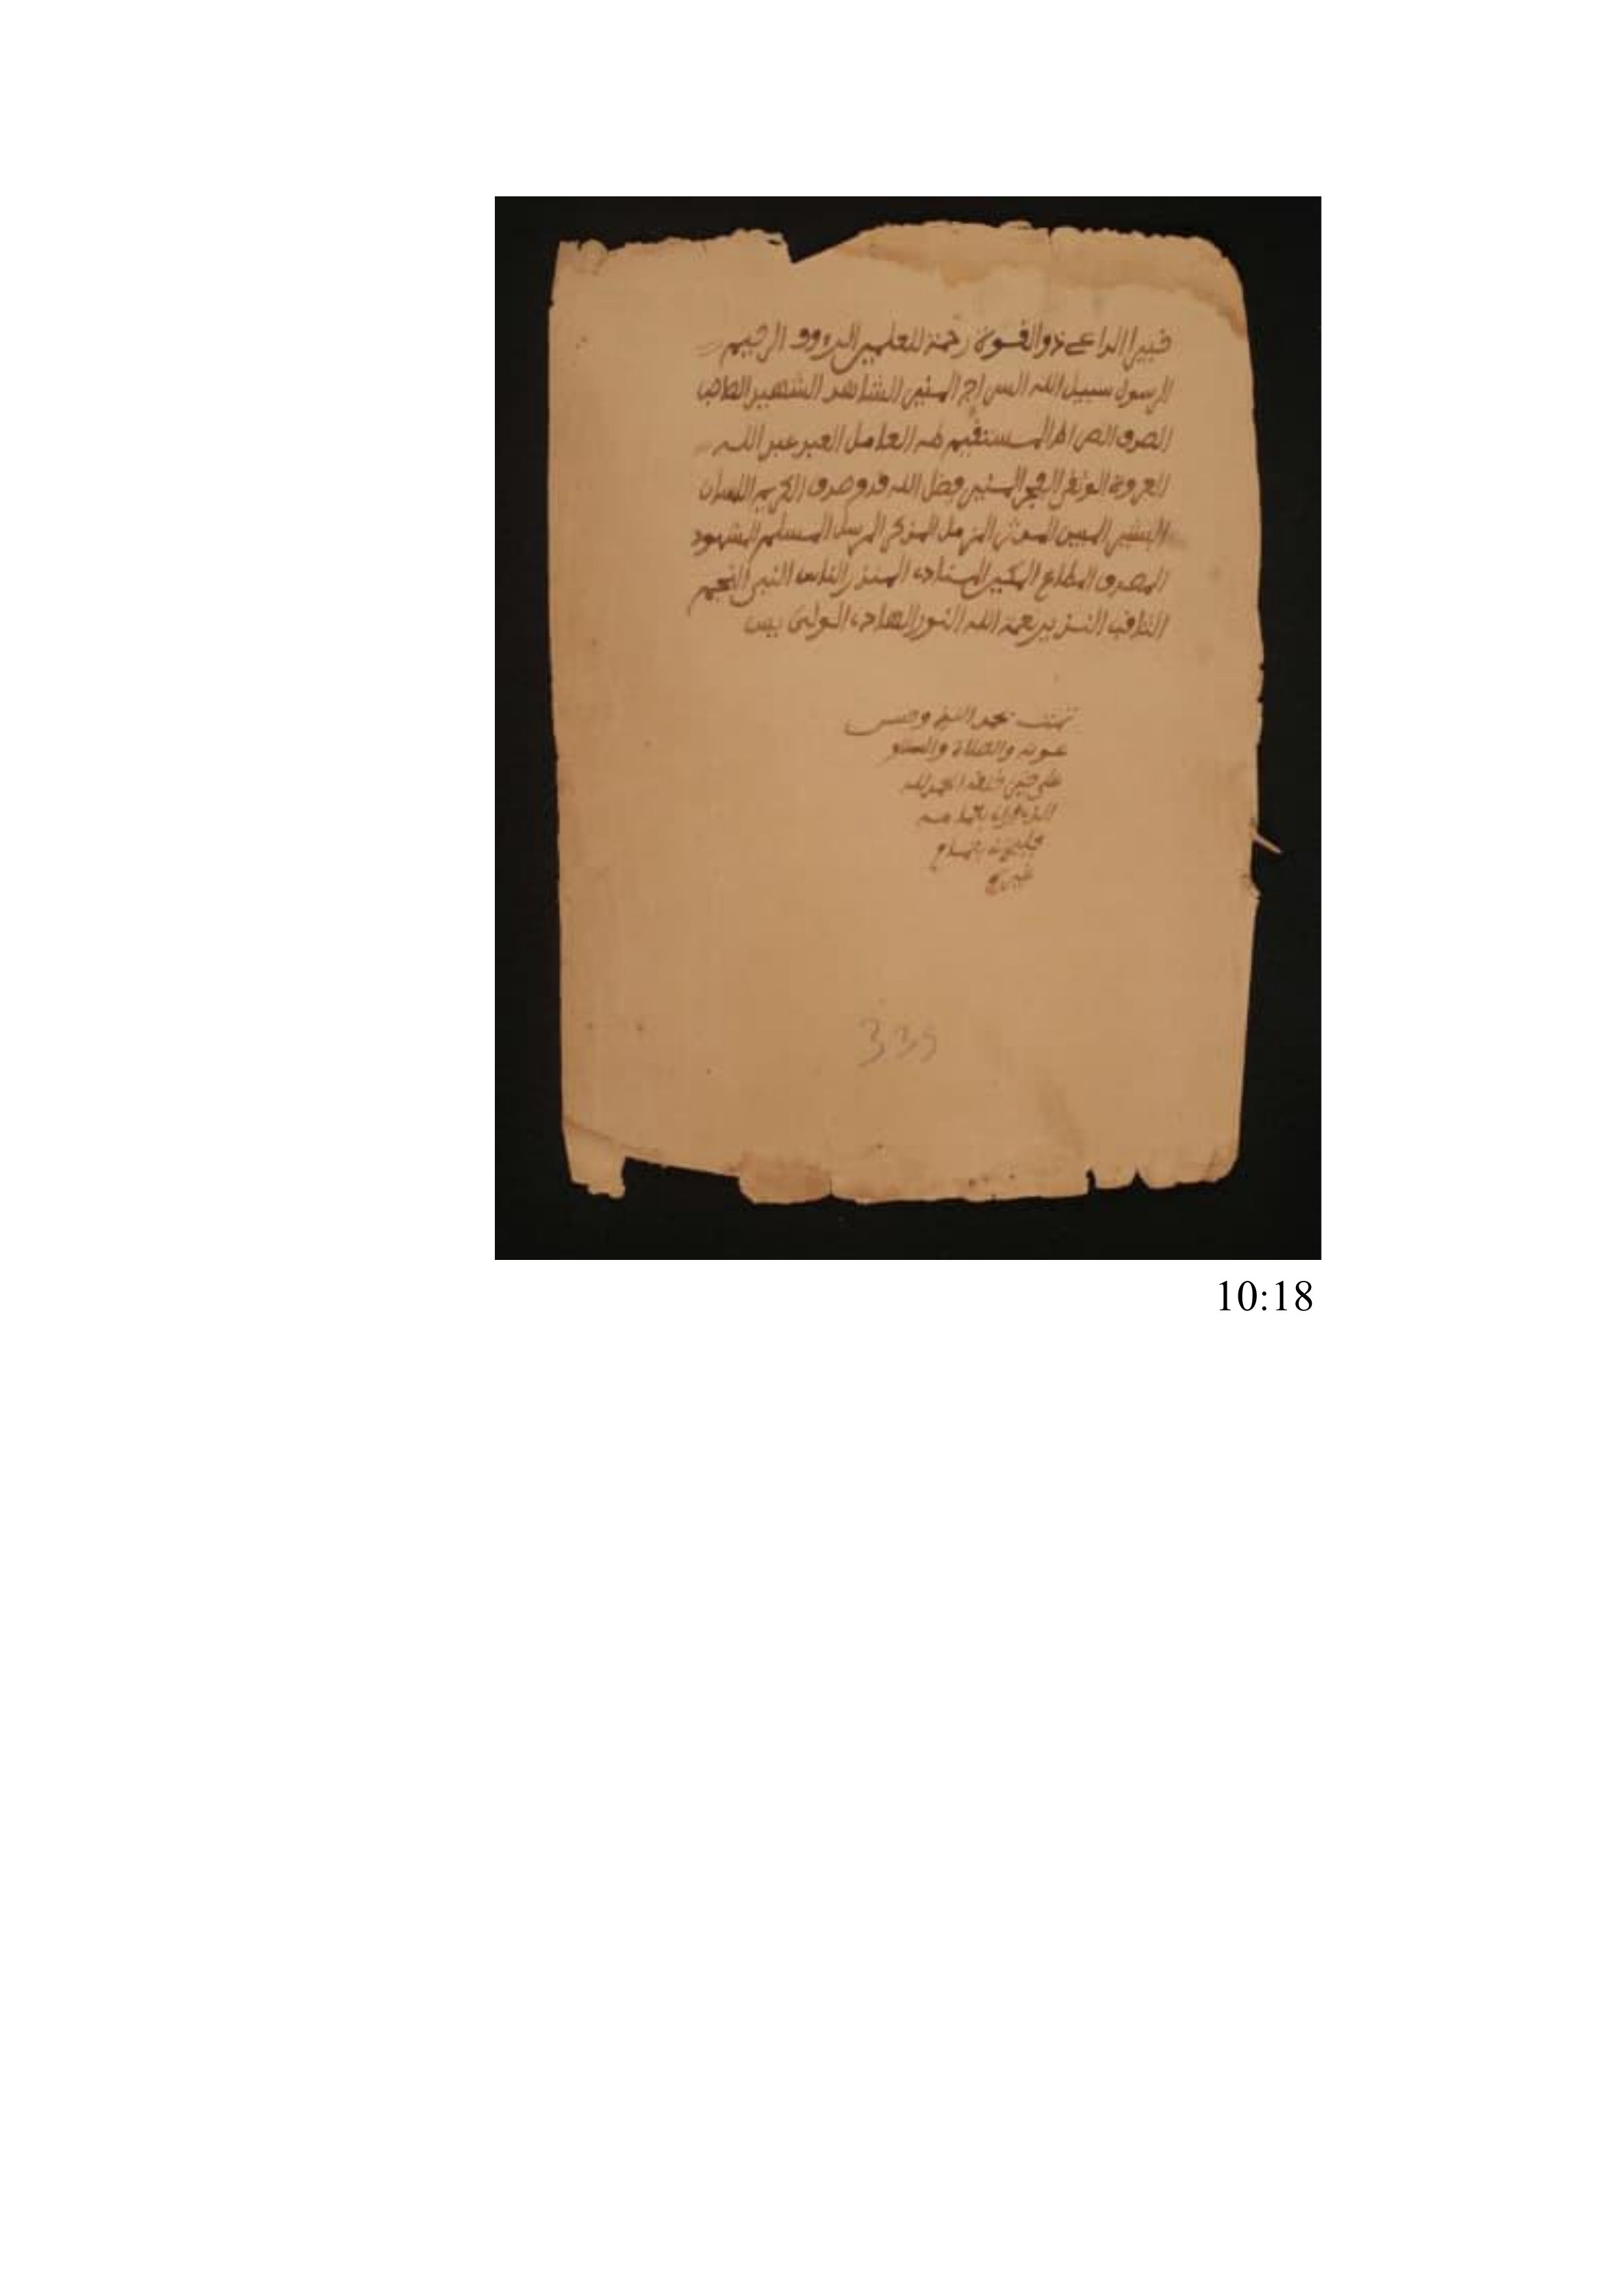 خبيرا الداعى ذو القوة رحمة للعلمين الرءوف الرحيم
الرسول سبيل الله السراج المنير الشاهد الشهير الصاحب
الصدق الصراط المستقيم طه العامل العبد عبد الله
العروة الوثقى الفجر المنير فضل الله قدم صدق الكريم اللسان
البشير المبين المدثر المزمل المذكر المرسل المسلم المشهود
المصدق المطاع المكين المنادى المنذر الناس النبى النجم
الثاقب النذير نعمة الله النور الهادى الولى يس
تمت بحمد الله وحسن
عونه والصلاة والسلام
على خير خلقه الحمد لله
339
10:18